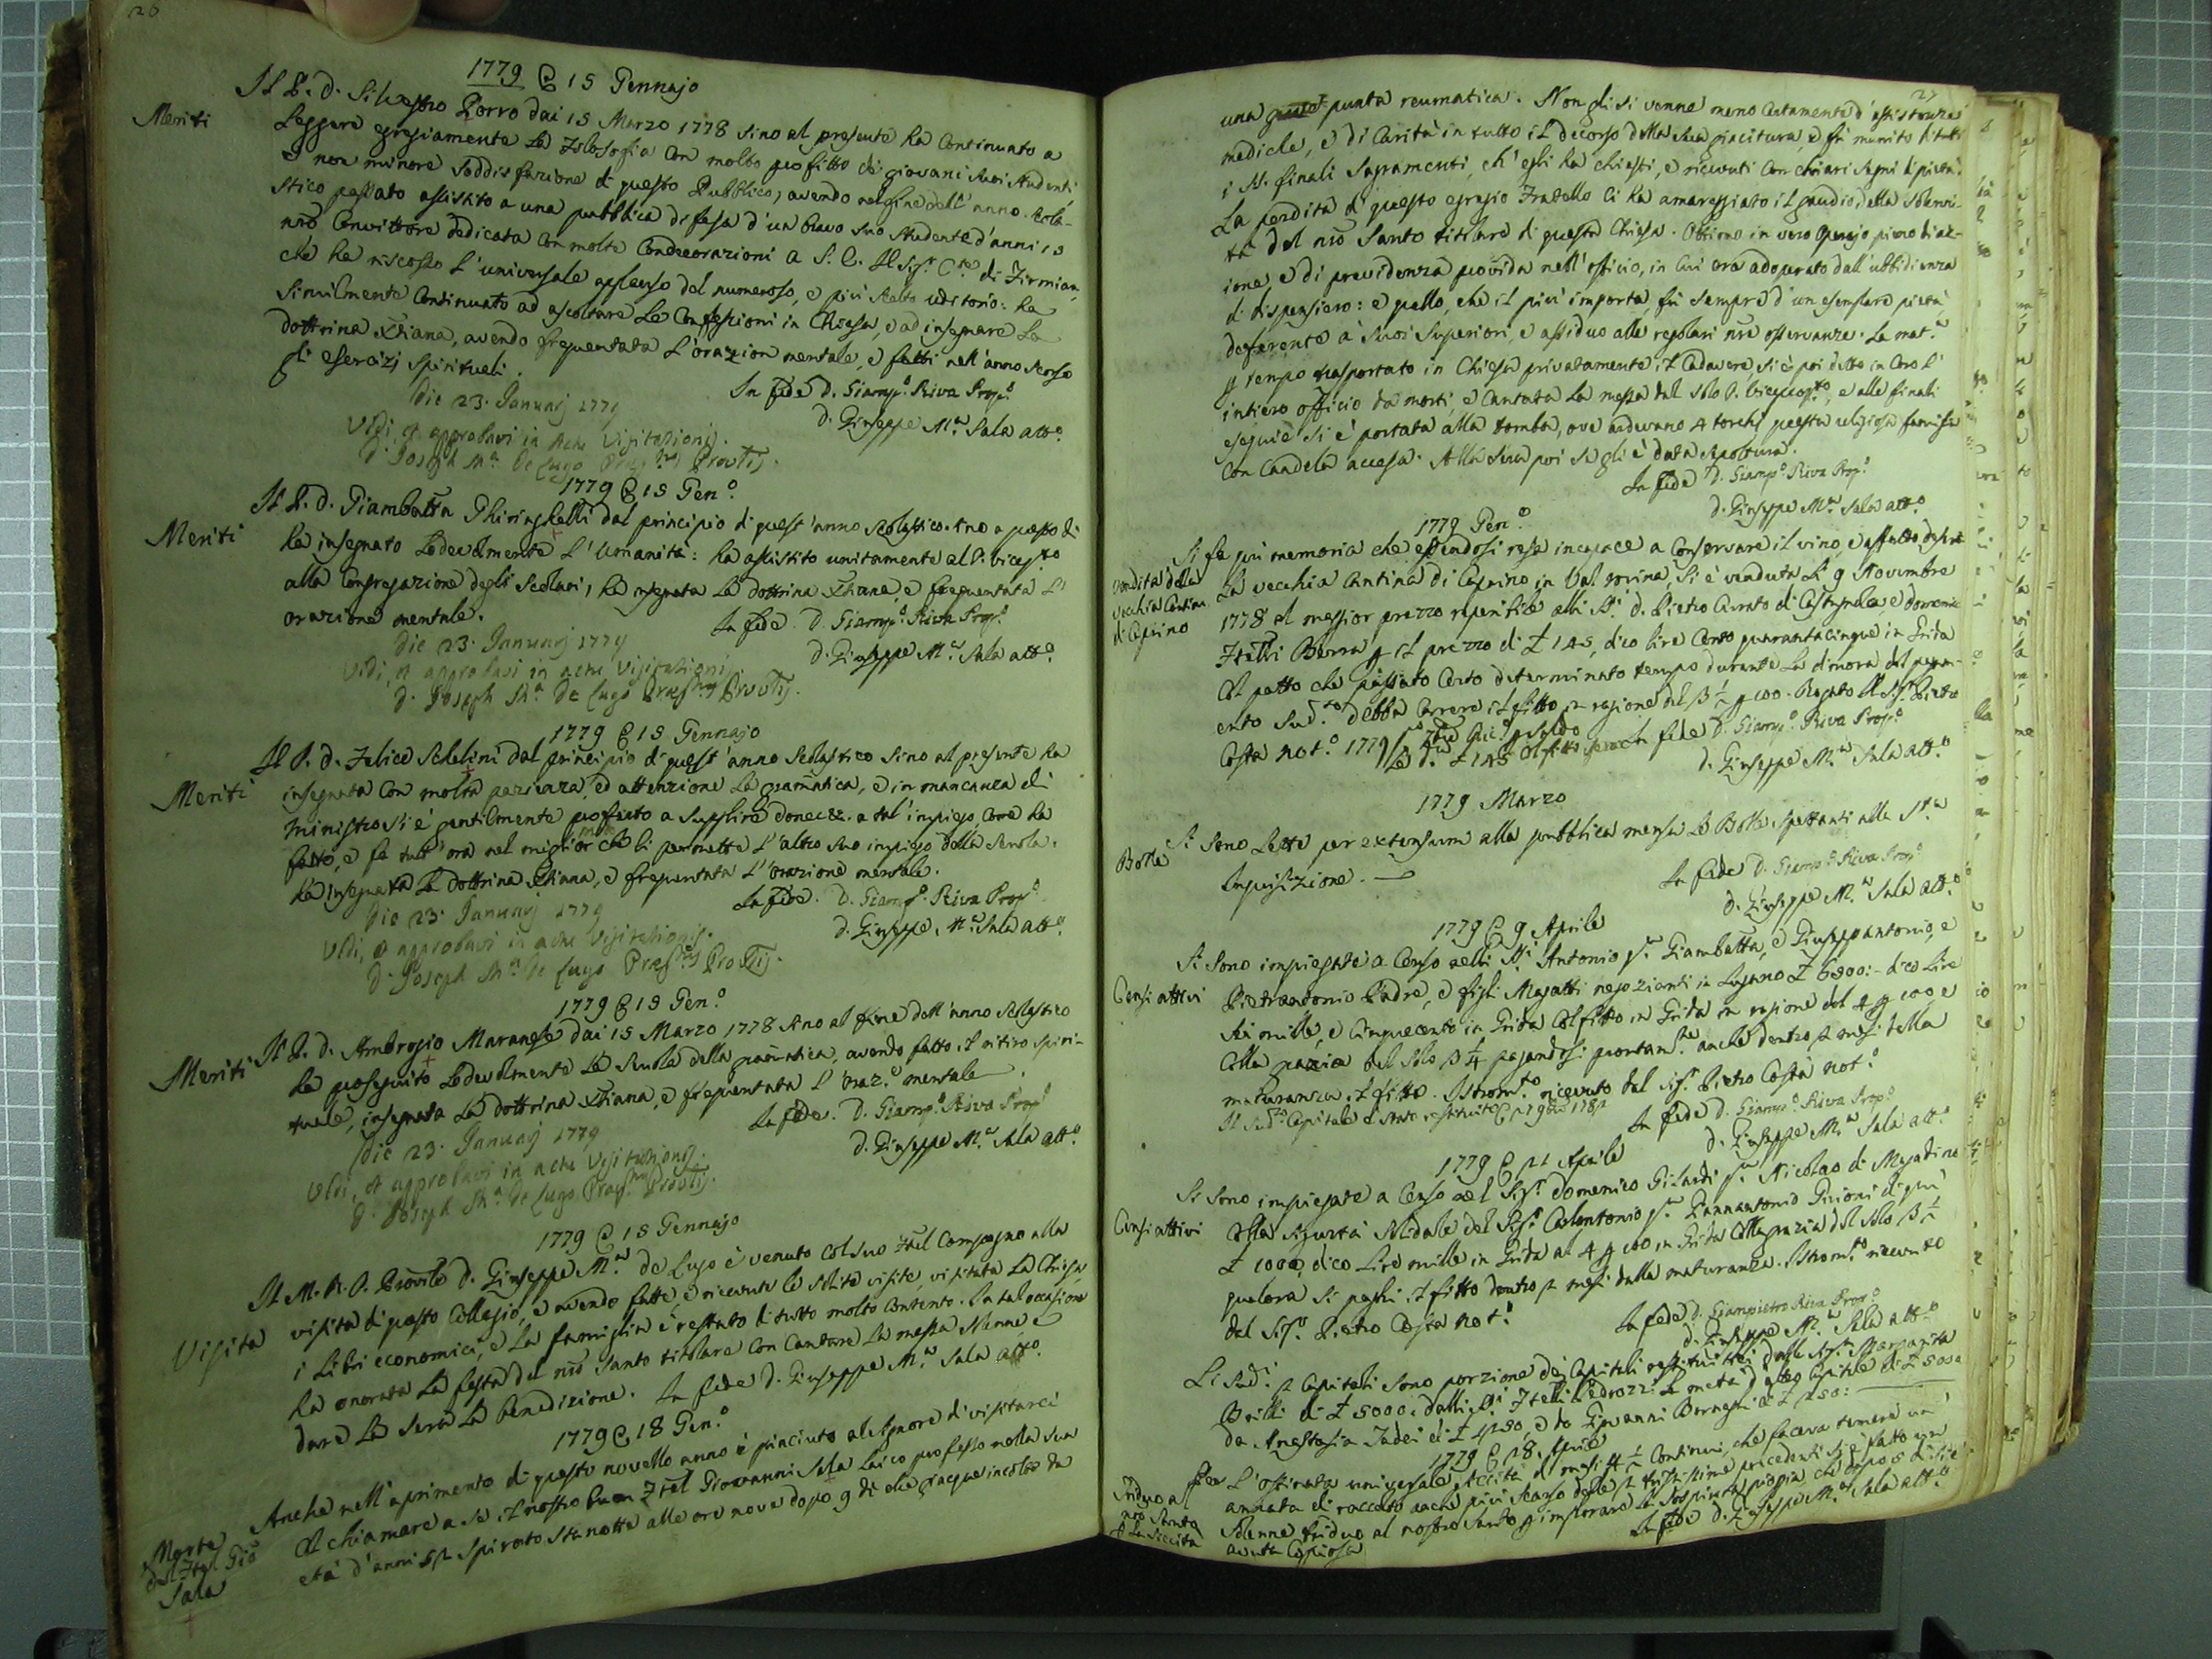 26
1779 @ 15 Gennajo
Meriti
Il P. D. Silvestro Porro dai 15 Marzo 1778 sino al presente ha continuato a
leggere egregiamente la Filosofia con molto profitto de' giovani suoi studenti
e non minore soddisfazione di questo Pubblico; avendo nel fine dell' anno scola-
stico passato assistito a una pubblica difesa d'un bravo suo studente d'anni 15
nrõ Convittore dedicata con molte condecorazioni a S. E. Il Sigr. Cte. di Firmian,
che ha riscosso l'universale applauso del numeroso, e più scelto uditorio: ha
similmente continuato ad ascoltare le Confessioni in Chiesa, e ad insegnare la
dottrina Xtiana, avendo frequentata l'orazion mentale, e fatti nell'anno scorso
gli esercizj spirituali.
In fede D. Giamp.º Riva Prop.º
D. Giuseppe M.ª Sala att.º
Die 23. Januarij 1779
Vidi, et approbavi in actu Visitationis.
D. Joseph M.ª De Lugo Præp.tus Prov.lis.
1779 @ 15 Gen.º
Meriti
Il P. D. Giambatta Ghiringhelli dal principio di quest'anno scolastico sino a questo dì
ha insegnato lodevolmente l'Umanità: ha assistito unitamente al P. Vicep.to
alla Congregazione degli Scolari, ha insegnata la dottrina Xtiana, e frequentata l'
orazione mentale.
In fede. D. Giamp.º Riva Prop.º
D. Giuseppe M.ª Sala att.º
Die 23. Januarij 1779
Vidi, et approbavi in actu Visitationis.
D. Joseph M.ª De Lugo Præp.tus Prov.lis.
1779 @ 15 Gennajo
Meriti
Il P. D. Felice Schelini dal principio di quest'anno scolastico sino al presente ha
insegnata con molta pazienza, ed attenzione la gramatica, e in mancanza di
ministro si è gentilmente profferto a supplire donec &c. a tal' impiego, come ha
fatto, e fa tutt'ora nel miglior modo che li permette l'altro suo impiego della scuola.
ha insegnata la dottrina Xtiana, e frequentata l'orazione mentale.
In fede. D. Giamp.º Riva Prop.º
D. Giuseppe M.ª Sala att.º
Die 23. Januarij 1779
Vidi, et approbavi in actu Visitationis.
D. Joseph M.ª De Lugo Præp.tus Prov.lis.
1779 @ 15 Gen.º
Meriti
Il P. D. Ambrogio Maranese dai 15 Marzo 1778 sino al fine dell'anno scolastico
ha proseguito lodevolmente la scuola della gramatica, avendo fatto il ritiro spiri-
tuale, insegnata la dottrina Xtiana, e frequentata l'oraz.e mentale.
In fede. D. Giamp.º Riva Prop.º
D. Giuseppe M.ª Sala att.º
Die 23. Januarij 1779
Vidi, et approbavi in actu Visitationis.
D. Joseph M.ª De Lugo Præp.tus Prov.lis.
1779 @ 15 Gennajo
Visita
Il M. R. P. Provile D. Giuseppe M.ª De Lugo è venuto col suo Ftel Compagno alla
visita di questo Collegio, e avendo fatte, e ricevute le solite visite, visitata la Chiesa
i Libri economici, e la famiglia è restato di tutto molto contento. In tal occasione
ha onorata la festa del nrõ Santo titolare con cantare la messa solenne e
dare la sera la benedizione. In fede D. Giuseppe M.ª Sala att.º
1779 @ 18 Gen.º
Morte del Ftel Gio Sala
Anche nell'aprimento di questo novello anno è piaciuto al Signore di visitarci
col chiamare a se il nostro buon Ftel Giovanni Sala laico professo nella sua
età d'anni spirato sta notte alle ore nove dopo 9 dì che giacque incolto da
27
una punta reumatica. Non gli si venne meno certamente d'assistenza
mediche, e di carità in tutto il decorso della sua giacitura, e fu munito di tutti
i SS. finali Sagramenti, ch'egli ha chiesti, e ricevuti con chiari segni di pietà.
La perdita di questo egregio Fratello ci ha amareggiato il gaudio della solenni-
tà del nrõ Santo titolare di questa Chiesa. Ottimo in vero Operajo pieno di az-
ione, e di previdenza provida nell'officio, in cui era adoperato dall'ubbidienza
di dispensiero: e quello, che il più importa, fu sempre d'un esemplare pietà,
deferente a' suoi Superiori, e assiduo alle regolari nrẽ osservanze. La mat.ª
p tempo trasportato in Chiesa privatamente il Cadavere, si è poi detto in coro l'
intiero officio da morti, e cantata la messa dal solo P. Viceprep.to, e alle finali
esequie si è portata alla tomba, ove ardevano 4 torchj questa religiosa famiglia
con candela accesa. Alla sera poi se gli è data sepoltura.
In fede D. Giamp.º Riva Prop.º
D. Giuseppe M.ª Sala att.º
1779 Gen.º
Vendita della vecchia Cantina di Caprino
Si fa qui memoria che essendosi resa incapace a conservare il vino, e affatto
la vecchia Cantina di Caprino in Val si è venduta li 9 Novembre
1778 al maggior prezzo reperibile alli SSi D. Pietro di Castagnola, e domenico
Ftelli Barra p il prezzo di £ 145, dico lire cento quarantacinque in Grida
Col patto che passato certo determinato tempo durante la dimora del pagam-
ento sud.to debba correre il fitto in ragione del 3 ½ p 100. Rogato il Sigr. Pietro
Costa Not.º 1779
£ 145
In fede D. Giamp.º Riva Prop.º
D. Giuseppe M.ª Sala att.º
1779 Marzo
Bolle
Si sono lette per extensum alla pubblica mensa le Bolle spettanti alla S.ta
Inquisizione.
In fede D. Giamp.º Riva Prop.º
D. Giuseppe M.ª Sala att.º
1779 @ 9 Aprile
Censi attivi
Si sono impiegate a Censo nelli SSi Antonio Giambatta, e Giuseppantonio, e
Pietrantonio Padre, e figli Magatti negozianti in Lugano £ 6500:- dico lire
sei mille, e cinquecento in Grida col fitto in Grida in ragione del 4 p 100 e
colla grazia del solo 3 ¼ pagandosi prontam.te anche dentro 2 mesi della
maturanza il fitto. Istrom.to ricevuto dal Sigr. Pietro Costa Not.º
Il sud.º Capitale è stato restituito
In fede D. Giamp.º Riva Prop.º
D. Giuseppe M.ª Sala att.º
1779 @ 21 Aprile
Censi attivi
Si sono impiegate a Censo nel Sigr. Domenico Gilardi Nicolao di Magadino
colla sigurtà solidale del Sigr. Carlantonio Giannantonio Grioni di qui
£ 1000, dico lire mille in Grida al 4 p 100 in Grida colla grazia del solo 3 ½
qualora si paghi il fitto dentro 2 mesi dalla maturanza. Istrom.to ricevuto
dal Sigr. Pietro Costa Not.º
In fede D. Giampietro Riva Prop.º
D. Giuseppe M.ª Sala att.º
Li sud.i 2 Capitali sono porzione de' Capitali restituiti dalla Sig.ra Margarita
di £ 5000. dalli SSi Ftelli Pedrozzi la metà d'altro Capitale di £ 5000
da Anastasia Tadei di £ 1250, e da Giovanni di £ 250:
1779 @ 28 Aprile
Triduo al nrõ Santo p la siccità
Per l'ostinata universale siccità di mesi 4 ½ continui, che faceva temere un
annata di raccolto anche più scarso delle 2 tristissime precedenti si è fatto un
solenne triduo al nostro Santo p implorare la sospirata pioggia che dopo 5 dì si è
avuta copiosa
In fede D. Giuseppe M.ª Sala att.º